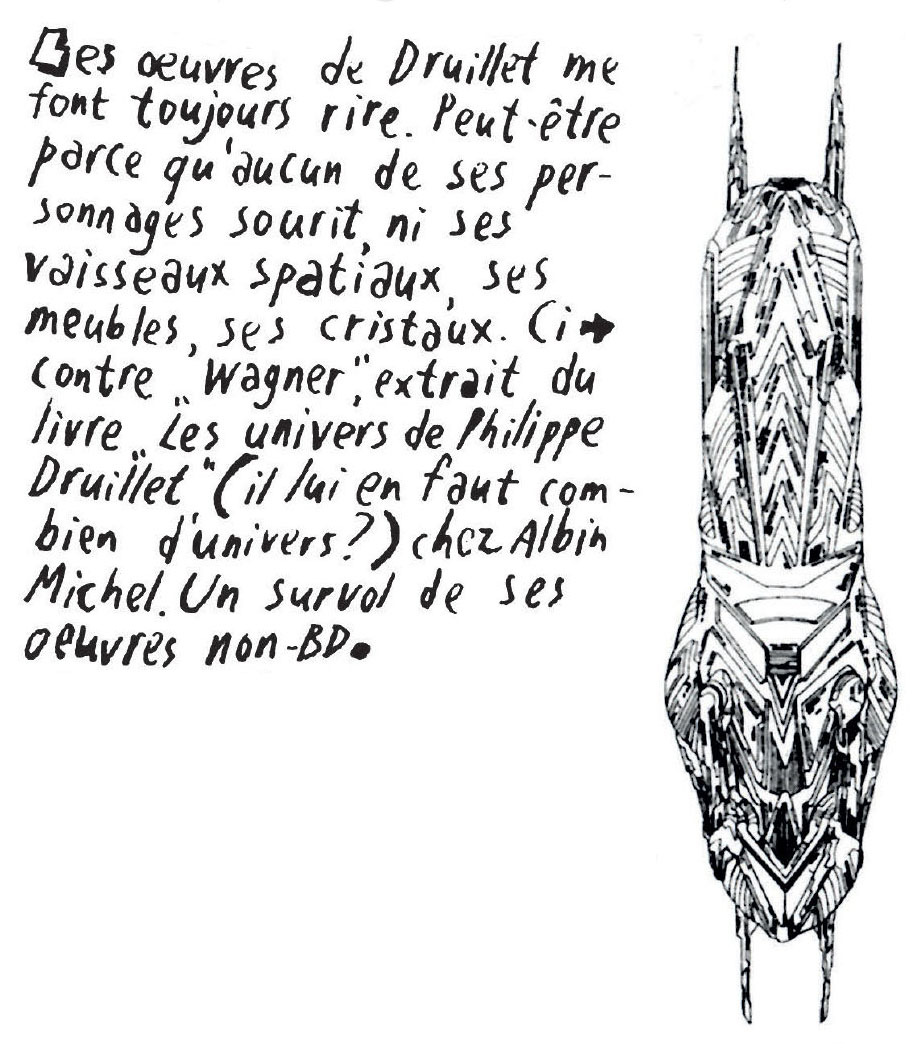 Les oeuvres de Druillet me
font toujours rire. Peut-être
parce qu'aucun de ses per-
sonnages sourit, ni ses
vaisseaux spatiaux, ses
meubles, ses cristaux. Ci→
contre „Wagner“, extrait du
livre „Les univers de Philippe
Druillet“ (il lui en faut com-
bien d'univers?) chez Albin
Michel. Un survol de ses
oeuvres non-BD.